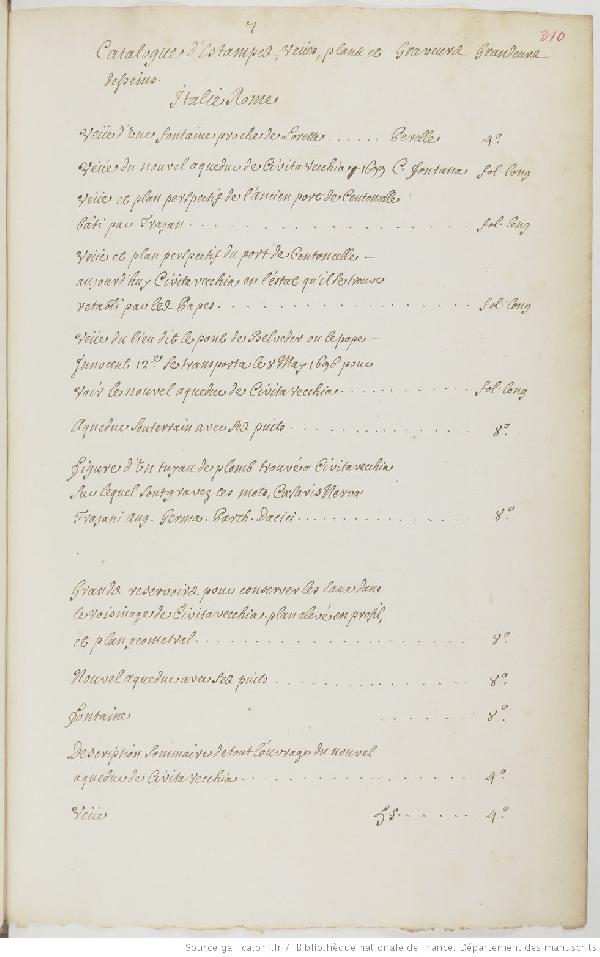 7
310
Catalogue d'Estampes, Veües, plans et Graveurs Grandeurs
desseins.
Italie Rome
Veüe d'Une fontaine proche de Lorette ...... Perelle 4º
Veüe du nouvel aqueduc de Civita Vecchia C. fontana fol. long
Veüe et plan perspectif de l'ancien port de Centoncelle
bâti par Trajan .......... fol. long
Veüe et plan perspectif du port de Centoncelle –
aujourd'huy Civita vecchia en l'estat qu'il se trouve
retabli par les Papes .......... fol. long
Veüe du lieu dit le pont de Belveder ou le pape –
Innocent 12e se transporta le 8 May 1696 pour
voir le nouvel aqueduc de Civita Vecchia .......... fol. long
Aqueduc souterrain avec ses puits .......... 8º
figure d'Un tuyau de plomb trouvé a Civita vecchia
sur lequel sont gravez ces mots, Cæsaris Nervæ
Trajani Aug. Germa. Parth. Dacici .......... 8º
Grands reservoirs pour conserver les Eaux dans
le voisinage de Civita vecchia, plan elevé en profil,
et plan geometral .......... 8º
Nouvel aqueduc avec ses puits .......... 8º
fontaine ...... 8º
Description sommaire de tout l'ouvrage du nouvel
aqueduc de Civita Vecchia .......... 4º
Veüe ...... 4º
Source gallica.bnf.fr / Bibliothèque nationale de France. Département des manuscrits